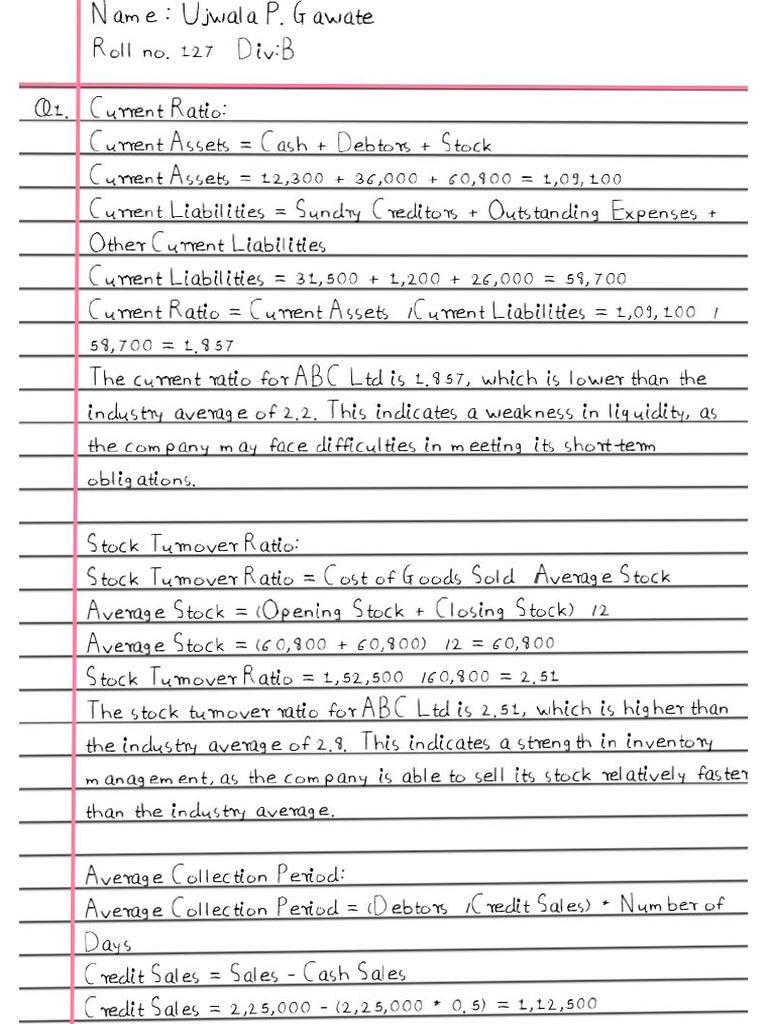 Name: Ujwala P. Gawate
Roll no. 127 Div:B
Q1. Current Ratio:
Current Assets = Cash + Debtors + Stock
Current Assets = 12,300 + 36,000 + 60,800 = 1,09,100
Current Liabilities = Sundry Creditors + Outstanding Expenses +
Other Current Liabilities
Current Liabilities = 31,500 + 1,200 + 26,000 = 58,700
Current Ratio = Current Assets / Current Liabilities = 1,09,100 /
58,700 = 1.857
The current ratio for ABC Ltd is 1.857, which is lower than the
industry average of 2.2. This indicates a weakness in liquidity, as
the company may face difficulties in meeting its short-term
obligations.
Stock Turnover Ratio:
Stock Turnover Ratio = Cost of Goods Sold Average Stock
Average Stock = (Opening Stock + Closing Stock) /2
Average Stock = (60,800 + 60,800) /2 = 60,800
Stock Turnover Ratio = 1,52,500 /60,800 = 2.51
The stock turnover ratio for ABC Ltd is 2.51, which is higher than
the industry average of 2.8. This indicates a strength in inventory
management, as the company is able to sell its stock relatively faster
than the industry average.
Average Collection Period:
Average Collection Period = (Debtors / Credit Sales) * Number of
Days
Credit Sales = Sales - Cash Sales
Credit Sales = 2,25,000 - (2,25,000 * 0.5) = 1,12,500